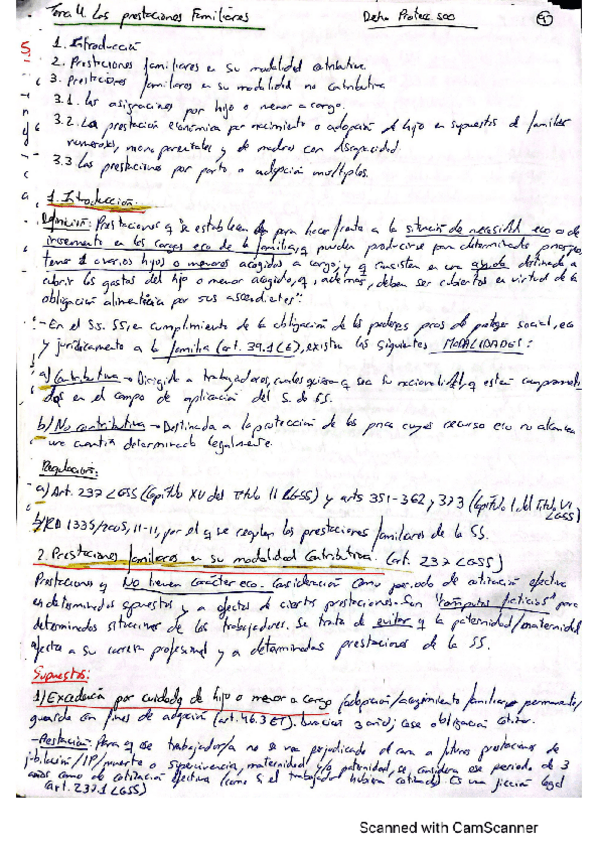 Tema 4. Las prestaciones Familiares Dcho Protecc. soc
1. Introducción
2. Prestaciones familiares en su modalidad contributiva.
3. Prestaciones familiares en su modalidad no contributiva
3.1. las asignaciones por hijo o menor a cargo.
3.2. La prestación económica por nacimiento o adopción de hijo en supuestos de familias
numerosas, monoparentales y de madres con discapacidad.
3.3 Las prestaciones por parto o adopción múltiples.
1. Introducción.
Definición: Prestaciones q se establecen para hacer frente a la situación de necesidad eco o de
incremento en las cargas eco de la familia, q pueden producirse para determinadas
tener 1 o varios hijos o menores acogidos a cargo, y q consisten en una ayuda destinada a
cubrir los gastos del hijo o menor acogido, q, además, deben ser cubiertos en virtud de la
obligación alimenticia por sus ascendientes".
- En el SS, en cumplimiento de la obligación de los poderes de proteger social, eco
y jurídicamente a la familia (art. 39.1 CE), existen las siguientes MODALIDADES:
a) Contributiva → Dirigida a trabajadores, cualesquiera q sea su nacionalidad, q estén
en el campo de aplicación del S. de SS.
b) No contributiva → Destinada a la protección de las cuyos recursos eco no alcancen
una cuantía determinada legalmente.
Regulación:
a) Art. 237 LGSS (Capítulo XV del Título II LGSS) y arts 351-362 y 373 (Capítulo I del Título VI
LGSS)
b) RD 1335/2005, 11-11, por el q se regulan las prestaciones familiares de la SS.
2. Prestaciones familiares en su modalidad Contributiva. (art. 237 LGSS)
Prestaciones q No tienen carácter eco. Consideración como periodo de cotización efectiva
en determinados supuestos y a efectos de ciertas prestaciones. Son "cómputos ficticios" para
determinadas situaciones de los trabajadores. Se trata de evitar q la paternidad/maternidad
afecte a su carrera profesional y a determinadas prestaciones de la SS.
Supuestos:
1) Excedencia por cuidado de hijo o menor a cargo (adopción/acogimiento familiar permanente/
guarda con fines de adopción (art. 46.3 ET). Duración 3 años, cese obligación cotizar.
- Prestación: Para q ese trabajador/a no se vea perjudicado de cara a futuras prestaciones de
jubilación/IP/muerte o supervivencia, maternidad y/o paternidad, se considera ese periodo de 3
años como de cotización efectiva (como si el trabajador hubiera cotizado) Es una ficción legal
(art. 237.1 LGSS)
Scanned with CamScanner